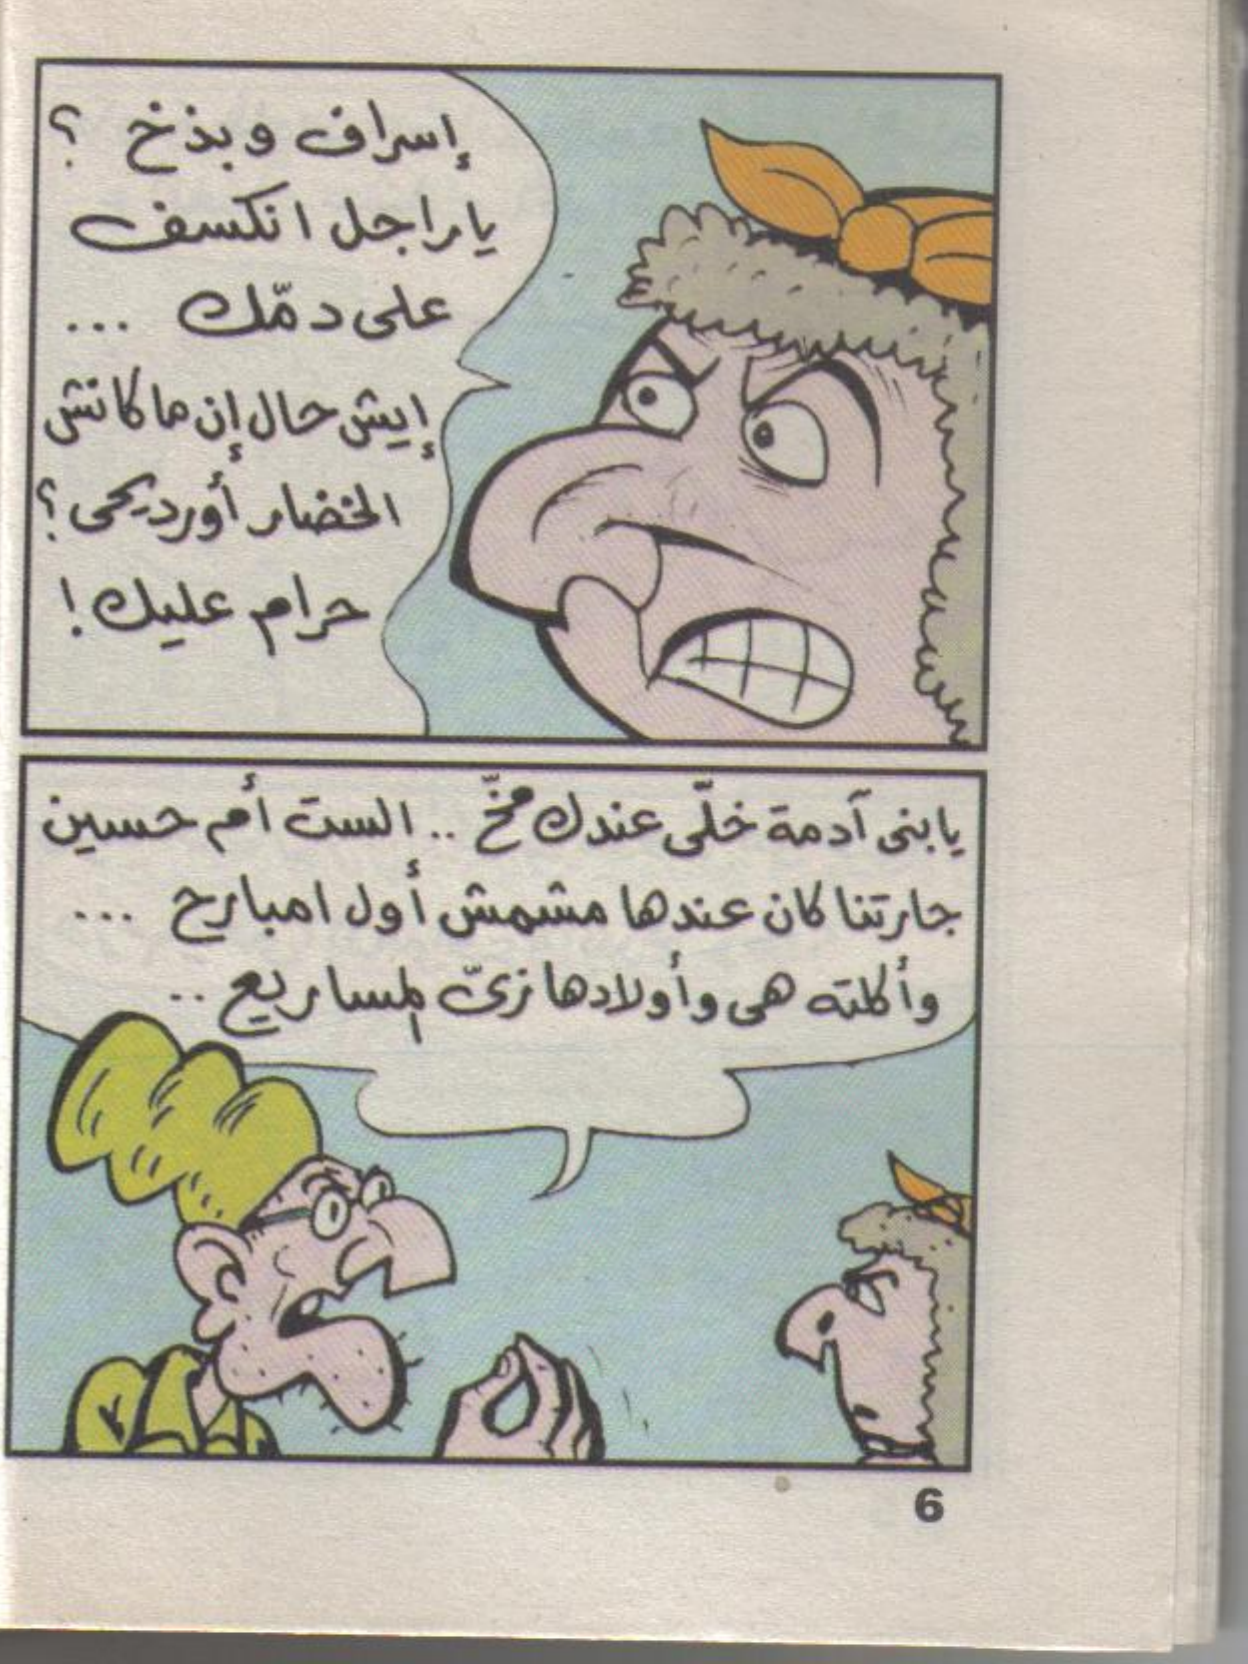 إسراف وبذخ ؟
ياراجل انكسف
على دمّك ...
إيش حال إن ماكانش
الخضار أورديحى ؟
حرام عليك !
يابنى آدمة خلّى عندك مخّ .. الست أم حسين
جارتنا كان عندها مشمش أول امبارح ...
وأكلته هى وأولادها زىّ المساريع ..
6